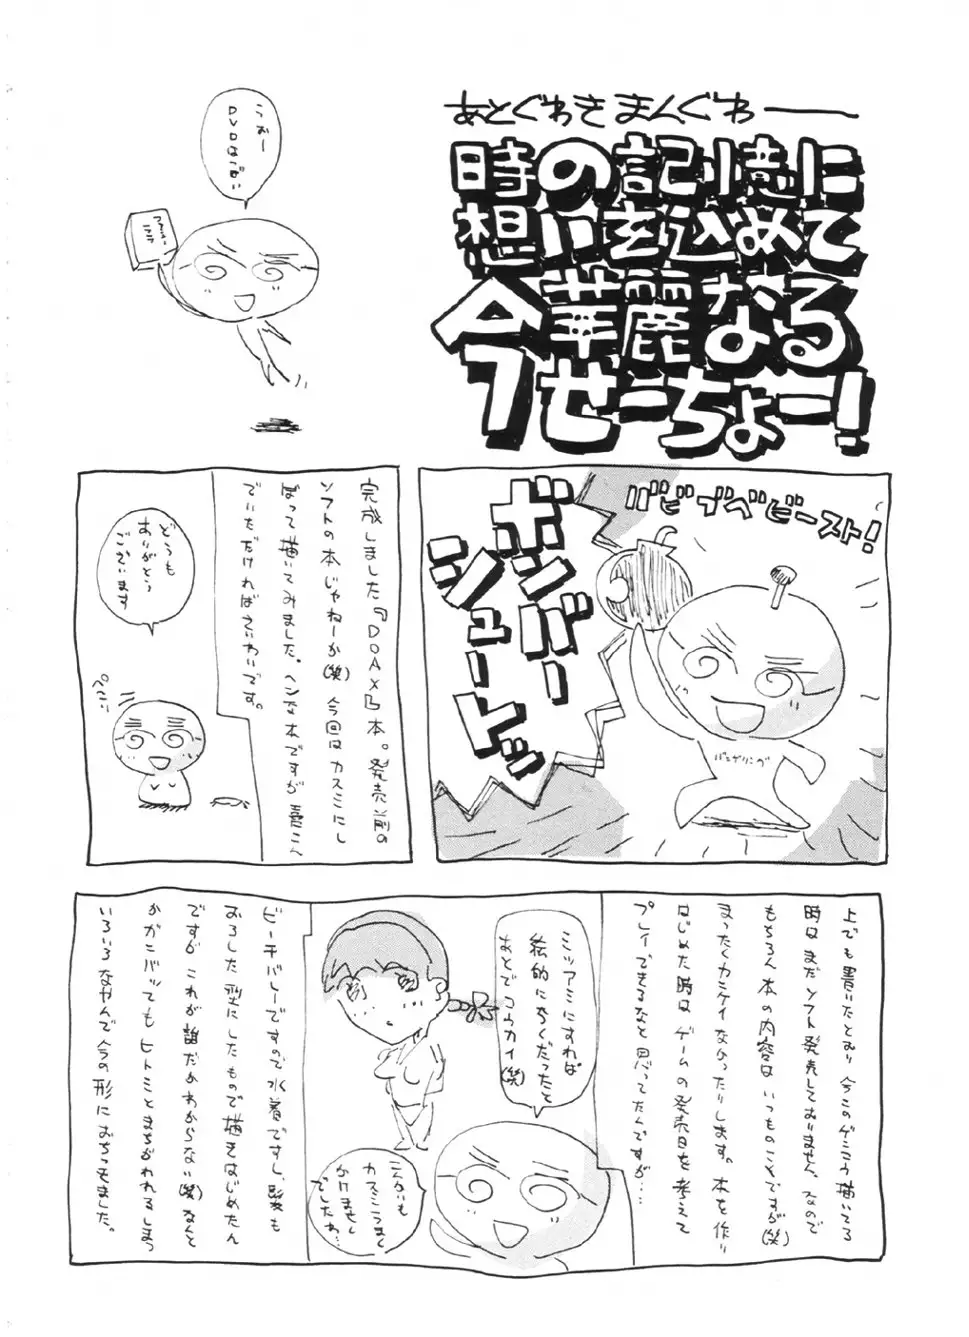 あとぐわき まんぐわー
時の記憶に
想いを込めて
今華麗なる
今ぜーちょー!
うおー
DVDはづい
バビブベビースト!
ボンバー
シュートッ
完成しました『DOAX』本。発売前の
ソフトの本じゃねーか(笑) 今回はカスミにし
ぼって描いてみました。ヘンな本ですが 喜こん
でいただければさいわいです。
どうも
ありがとう
ございます
ぺこっ
上でも書いたとおり 今このゲンコウ描いてる
時は まだソフト発売しておりません。なので
もちろん 本の内容は いつものことですが(笑)
まったくカンケイなかったりします。本を作り
はじめた時は ゲームの発売日を考えて
プレイできるなと思ってたんですが…
ミツアミにすれば
絵的にらくだったと
あとでコウカイ(笑)
こんかいも
カスミつまと
かけませし
でしたわ…
ビーチバレーですので水着ですし、髪も
おろした型にしたもので 描きはじめたん
ですが これが誰だかわからない(笑) なんと
かガンバッてもヒトミとまちがわれるしまつ
いろいろなやんで今の形におちつきました。